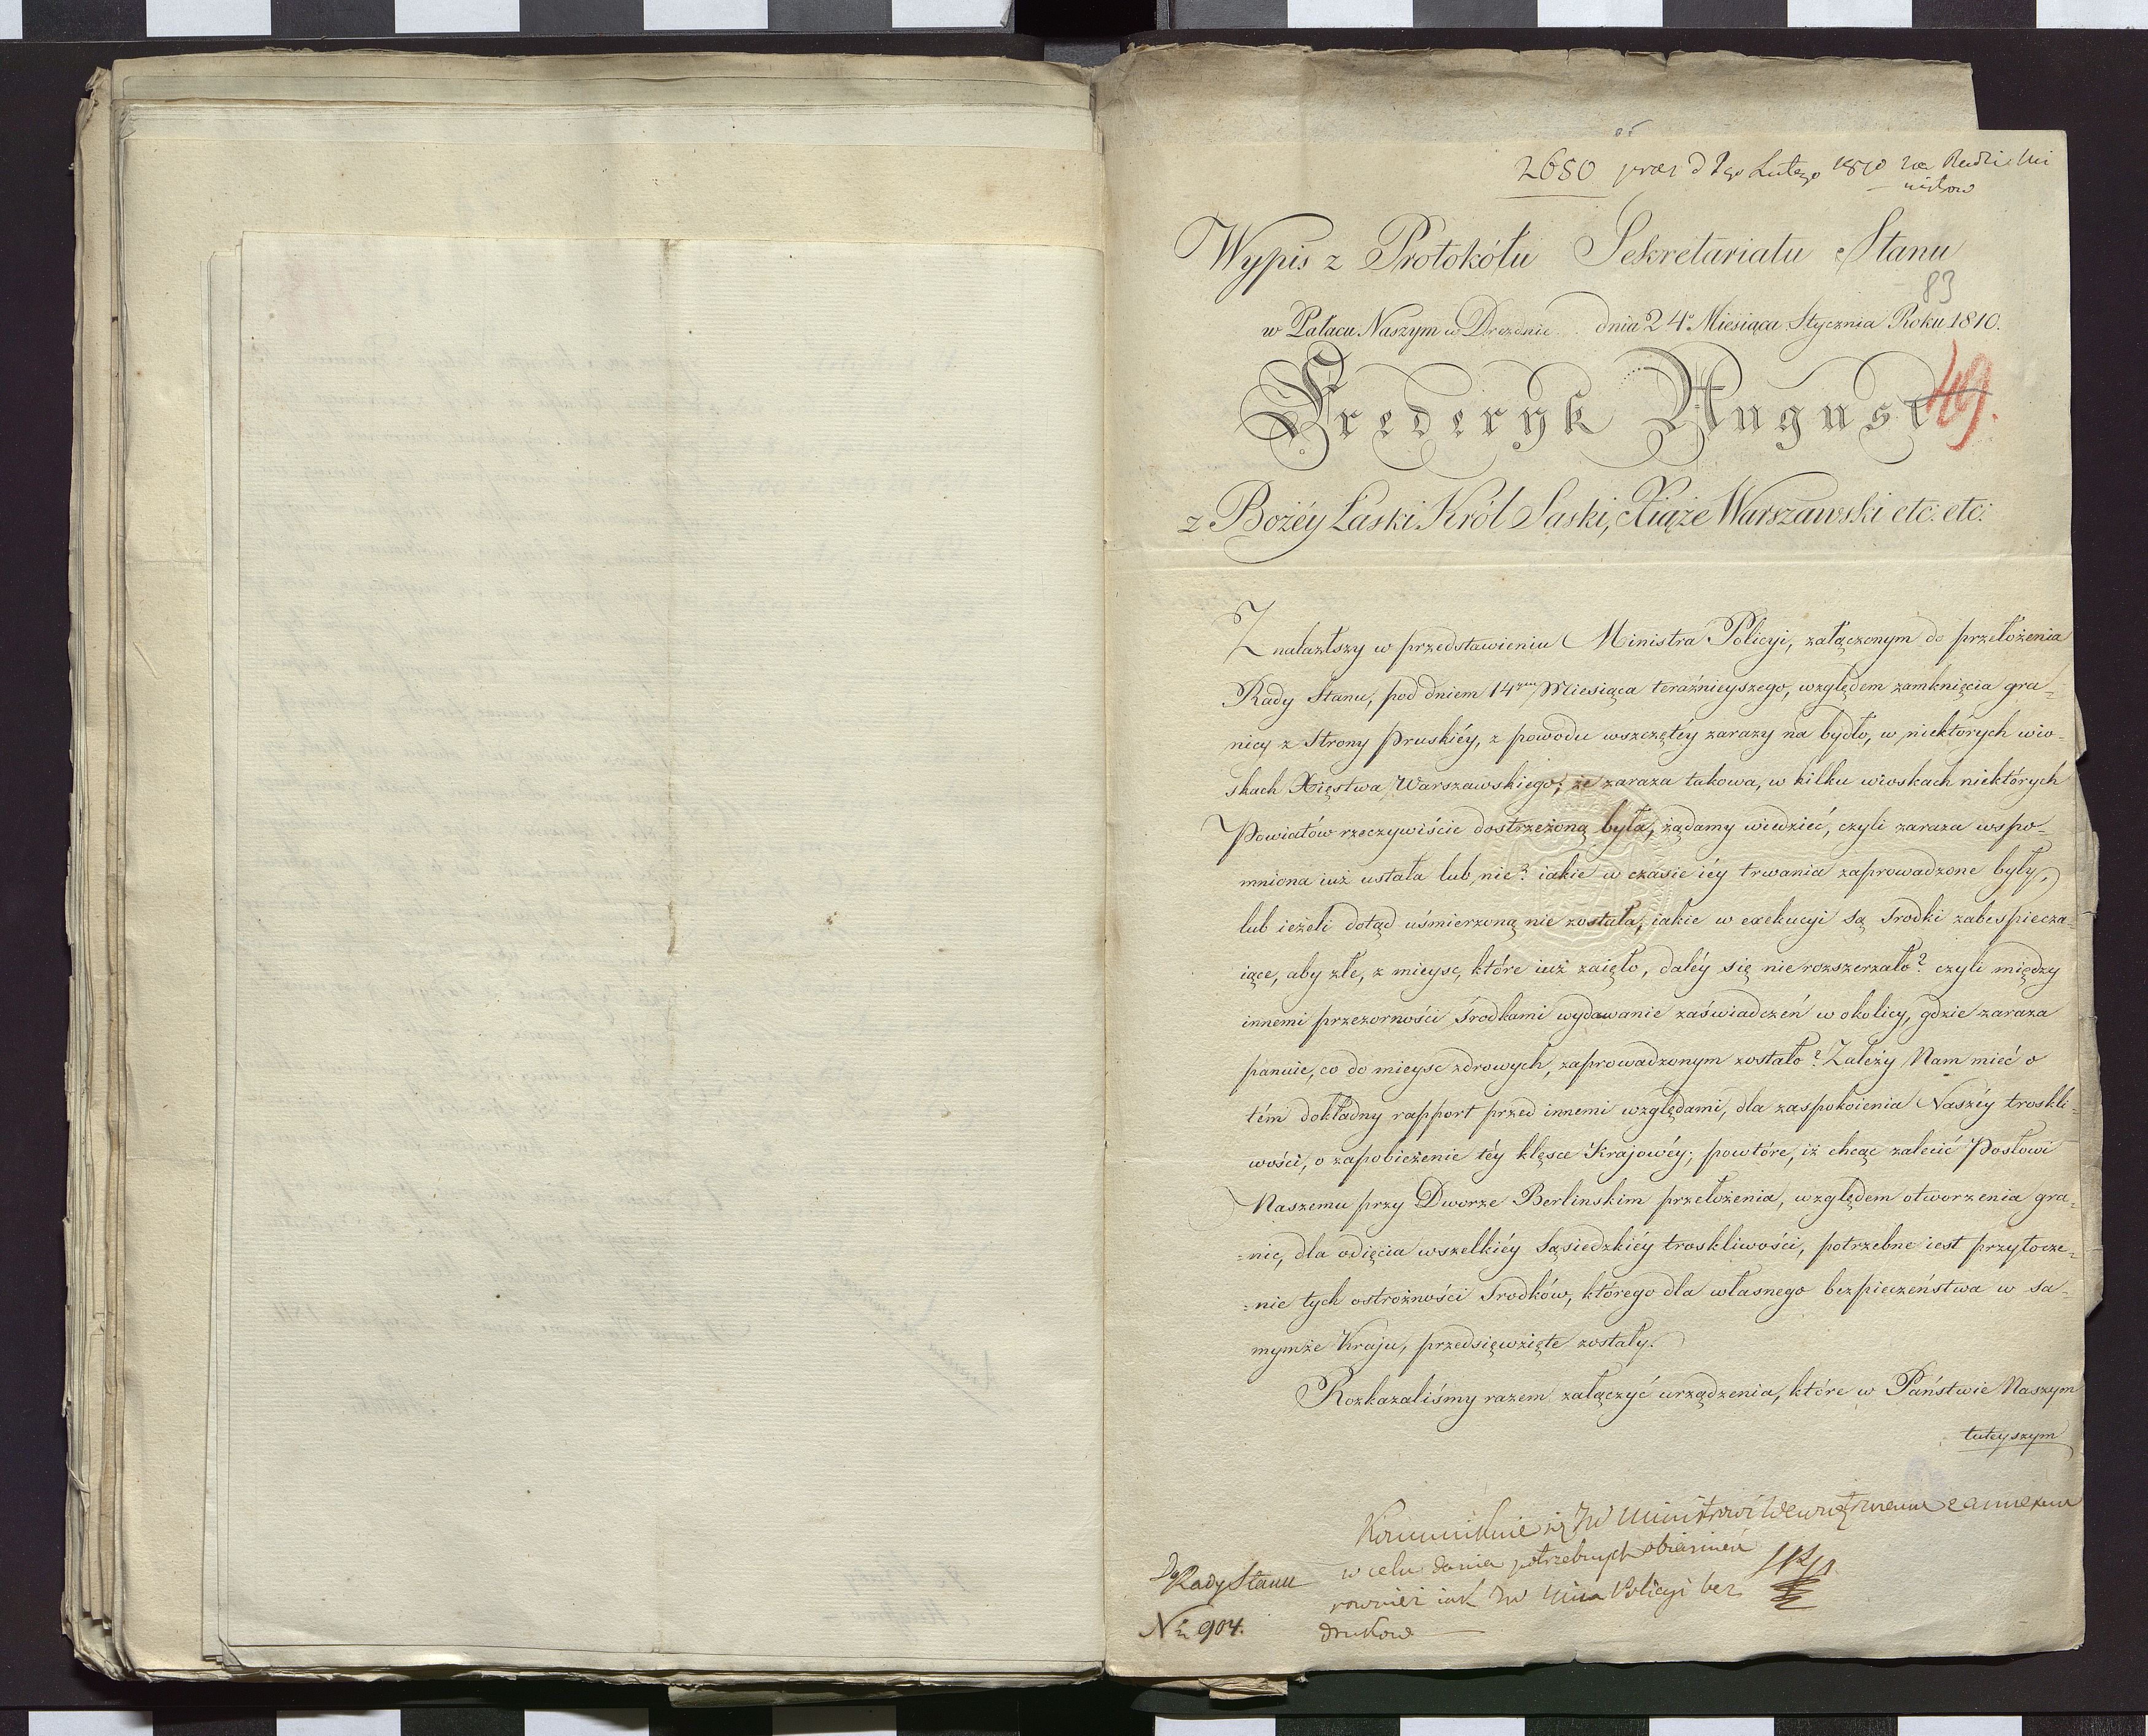 2680 praes d 7go Lutego 1810 na Radzie Mi
nistrow
Wypis z Protokółu Sekretariatu Stanu
83
w Pałacu Naszym w Dreznie dnia 24º Miesiąca Stycznia Roku 1810.
Fryderyk August
49.
z Bożéy Łaski Król Saski, Xiąże Warszawski etc: etc:
Znalazłszy w przedstawieniu Ministra Policyi, załączonym do przełożenia
Rady Stanu, pod dniem 14ym Miesiąca teraźnieyszego, względem zamknięcia gra-
nicy z Strony Pruskiéy, z powodu wszczętéy zarazy na bydło, w niektórych wio-
skach Xięstwa Warszawskiego; że zaraza takowa, w kilku wioskach niektórych
Powiatów rzeczywiście dostrzeżoną była, żądamy wiedzieć, czyli zaraza wspo-
mniona iuż ustała lub nie? iakie w czasie iéy trwania zaprowadzone były,
lub ieżeli dotąd uśmierzoną nie została, iakie w exekucyi są srodki zabespiecza
iące, aby złe, z mieysc, które iuż zaięło, daléy się nie rozszerzało? czyli między
innemi przezorności srodkami wydawanie zaświadczeń w okolicy, gdzie zaraza
panuie, co do mieysc zdrowych, zaprowadzonym zostało? Zależy Nam mieć o
tém dokładny rapport przed innemi względami, dla zaspokoienia Naszéy troskli-
wości, o zapobieżenie téy klęsce Krajowéy; powtóre, iż chcąc zalecić Posłowi
Naszemu przy Dworze Berlinskim przełożenia, względem otworzenia gra-
=nic, dla odięcia wszelkiéy Sąsiedzkiéy troskliwości, potrzebne iest przytocze-
=nie tych ostrożności Srodków, którego dla własnego bezpieczeństwa w sa-
mymże Kraju, przedsięwzięte zostały.
Rozkazaliśmy razem załączyć urządzenia, które w Państwie Naszym
tuteyszym
Kommunikuie się JW Ministrowi Wewnętrznemu z annexem
w celu dania potrzebnych obiasnień
rownież iak JW Mina Policyi bez
drukow
Do Rady Stanu
Nº 904.